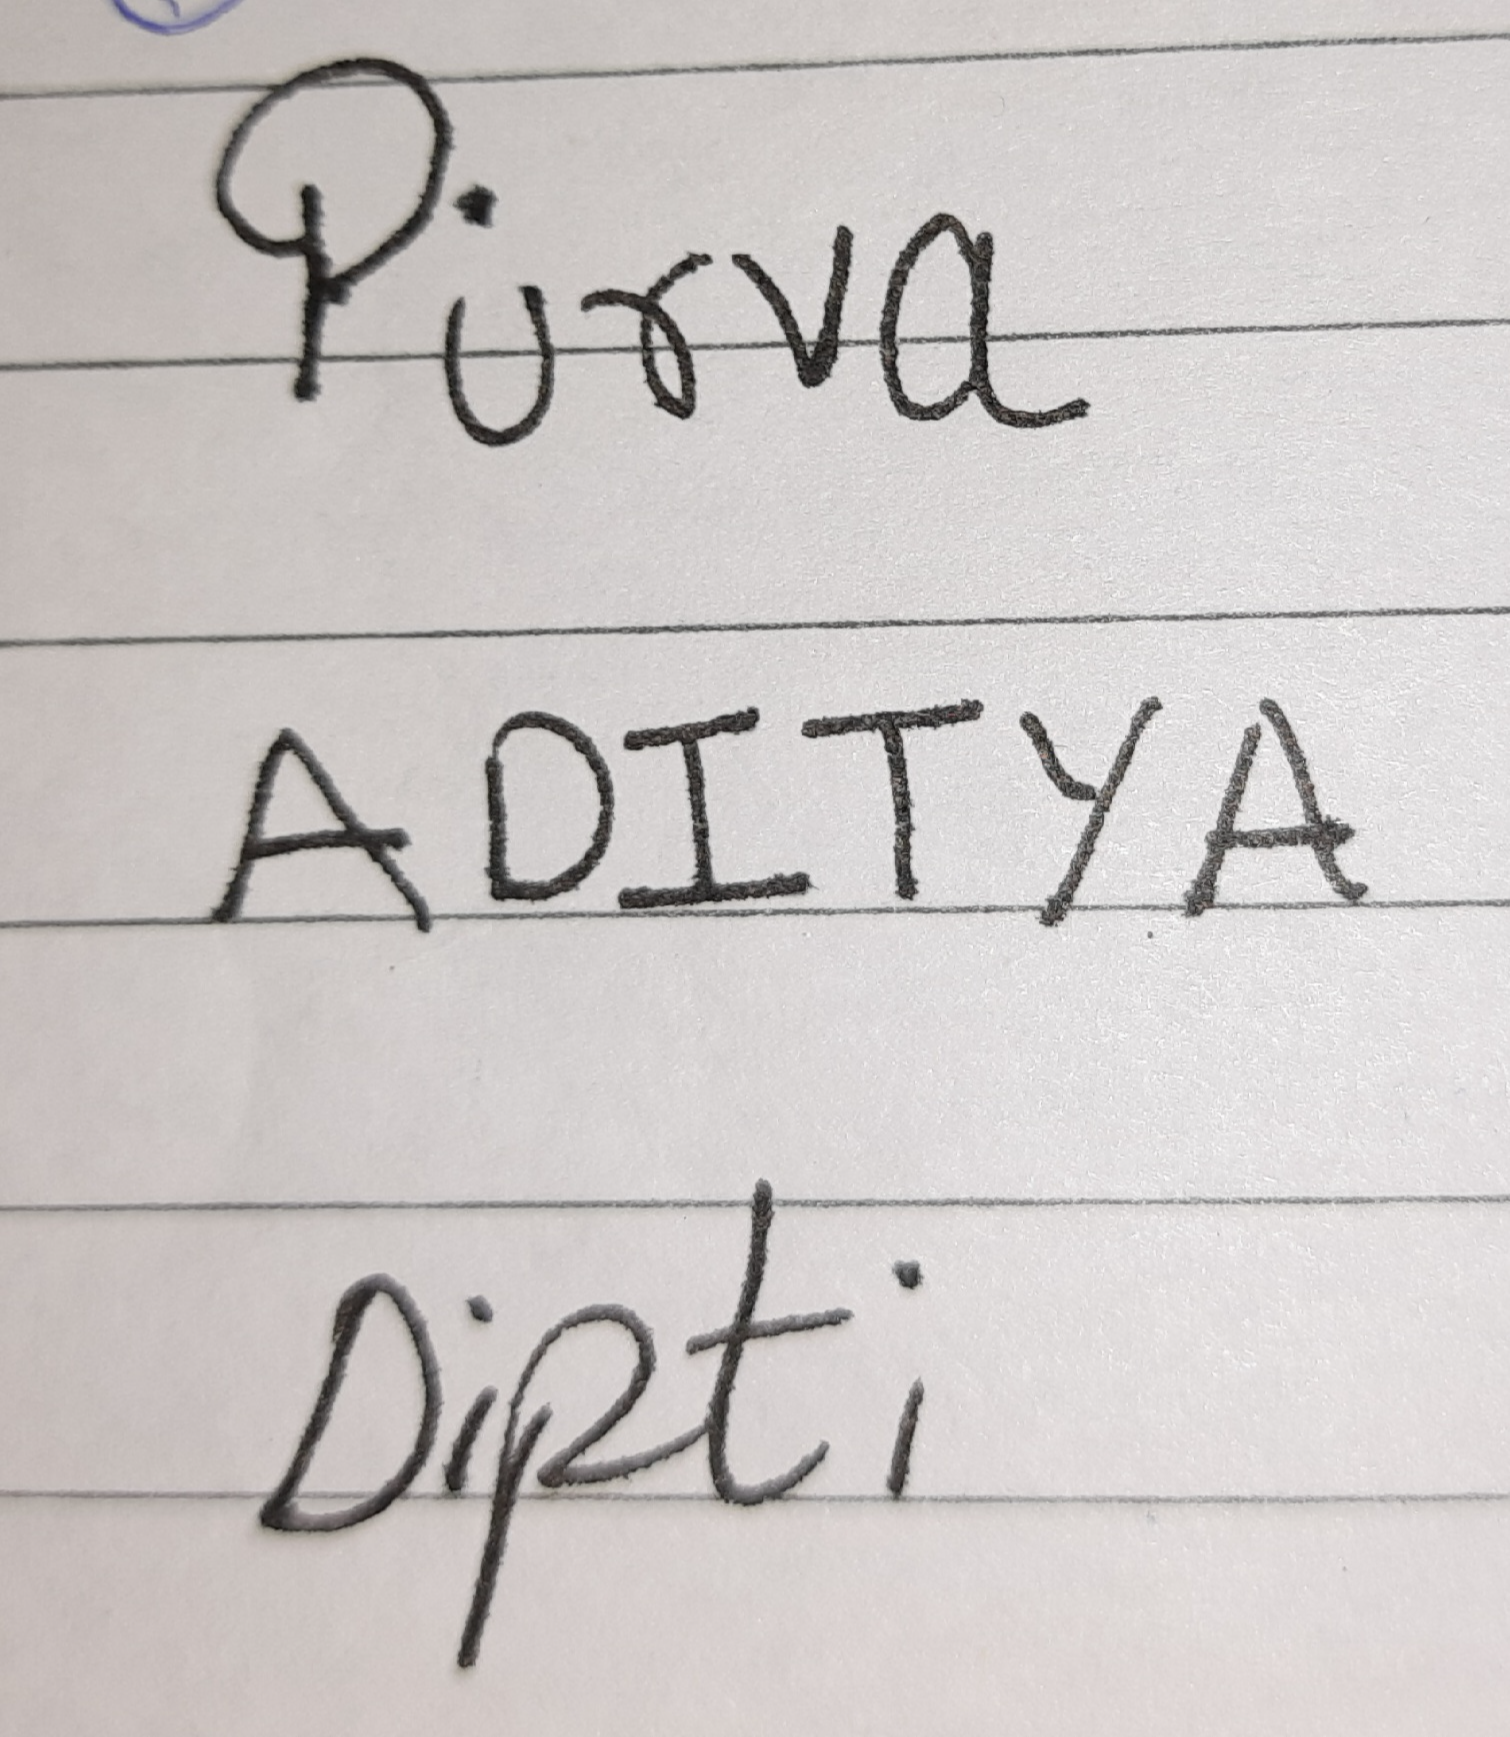 Purva
ADITYA
Dipti